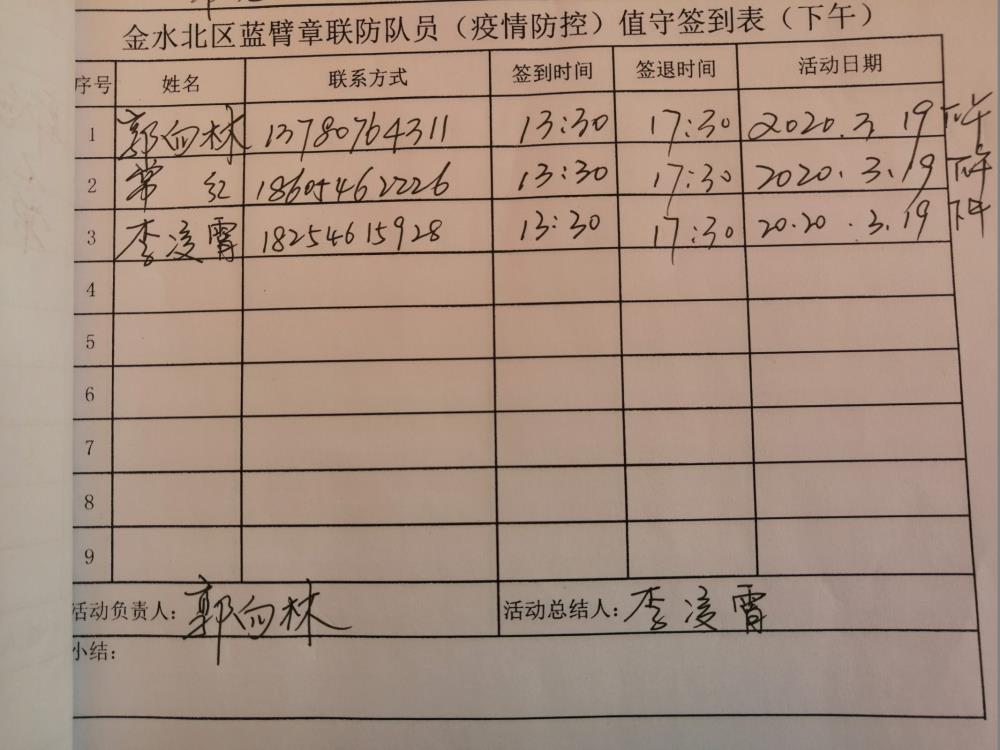 金水北区蓝臂章联防队员（疫情防控）值守签到表（下午）
序号 姓名 联系方式 签到时间 签退时间 活动日期
1 郭向林 13780764311 13:30 17:30 2020.3.19 下午
2 常红 18605462226 13:30 17:30 2020.3.19 下午
3 李凌霄 18254615928 13:30 17:30 2020.3.19 下午
4
5
6
7
8
9
活动负责人：郭向林 活动总结人：李凌霄
小结：